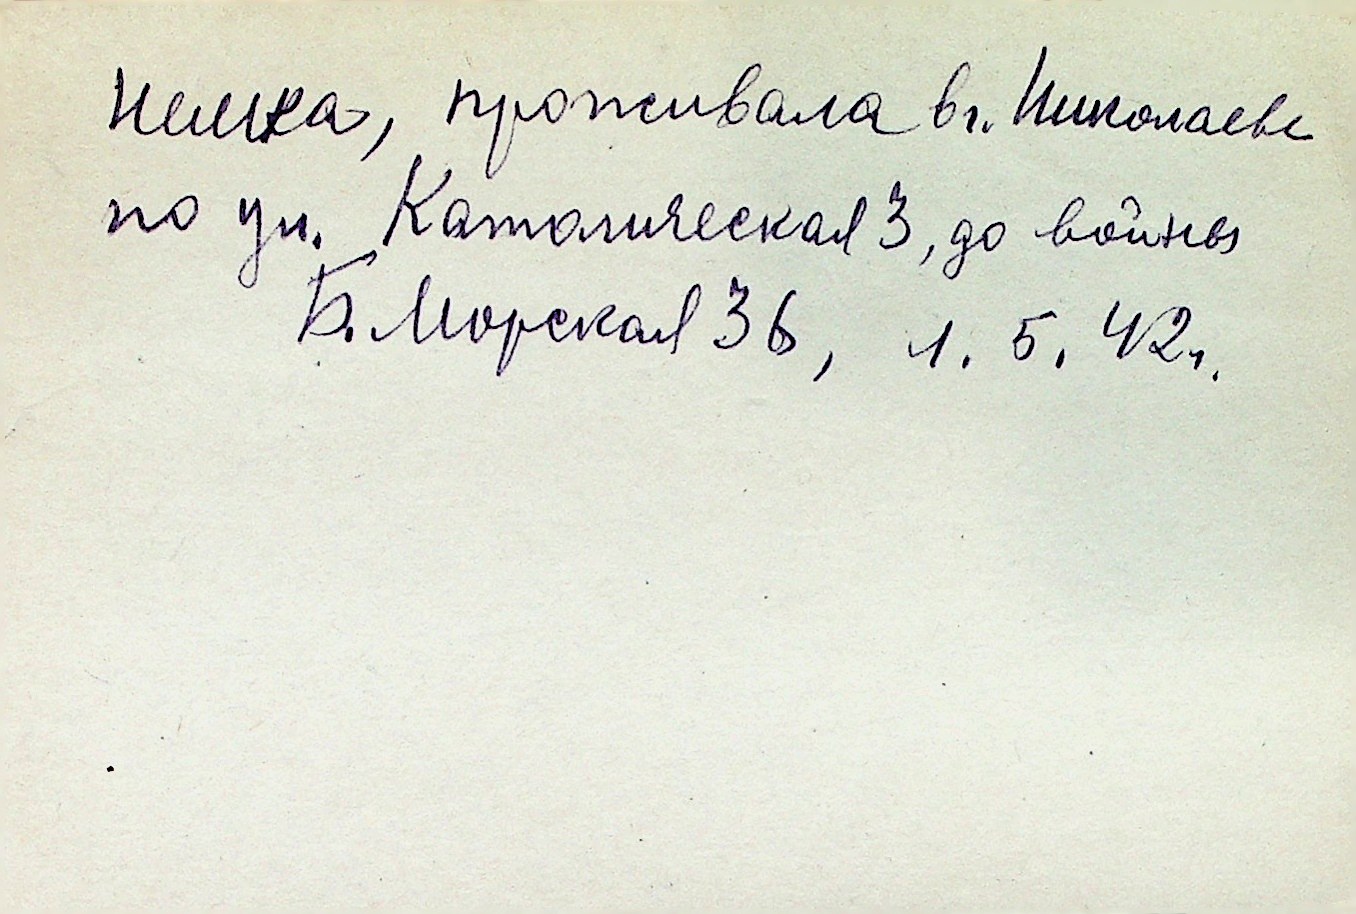 немка, проживала в г. Николаеве
по ул. Католическая 3, до войны
Б. Морская 36, 1. 5. 42 г.